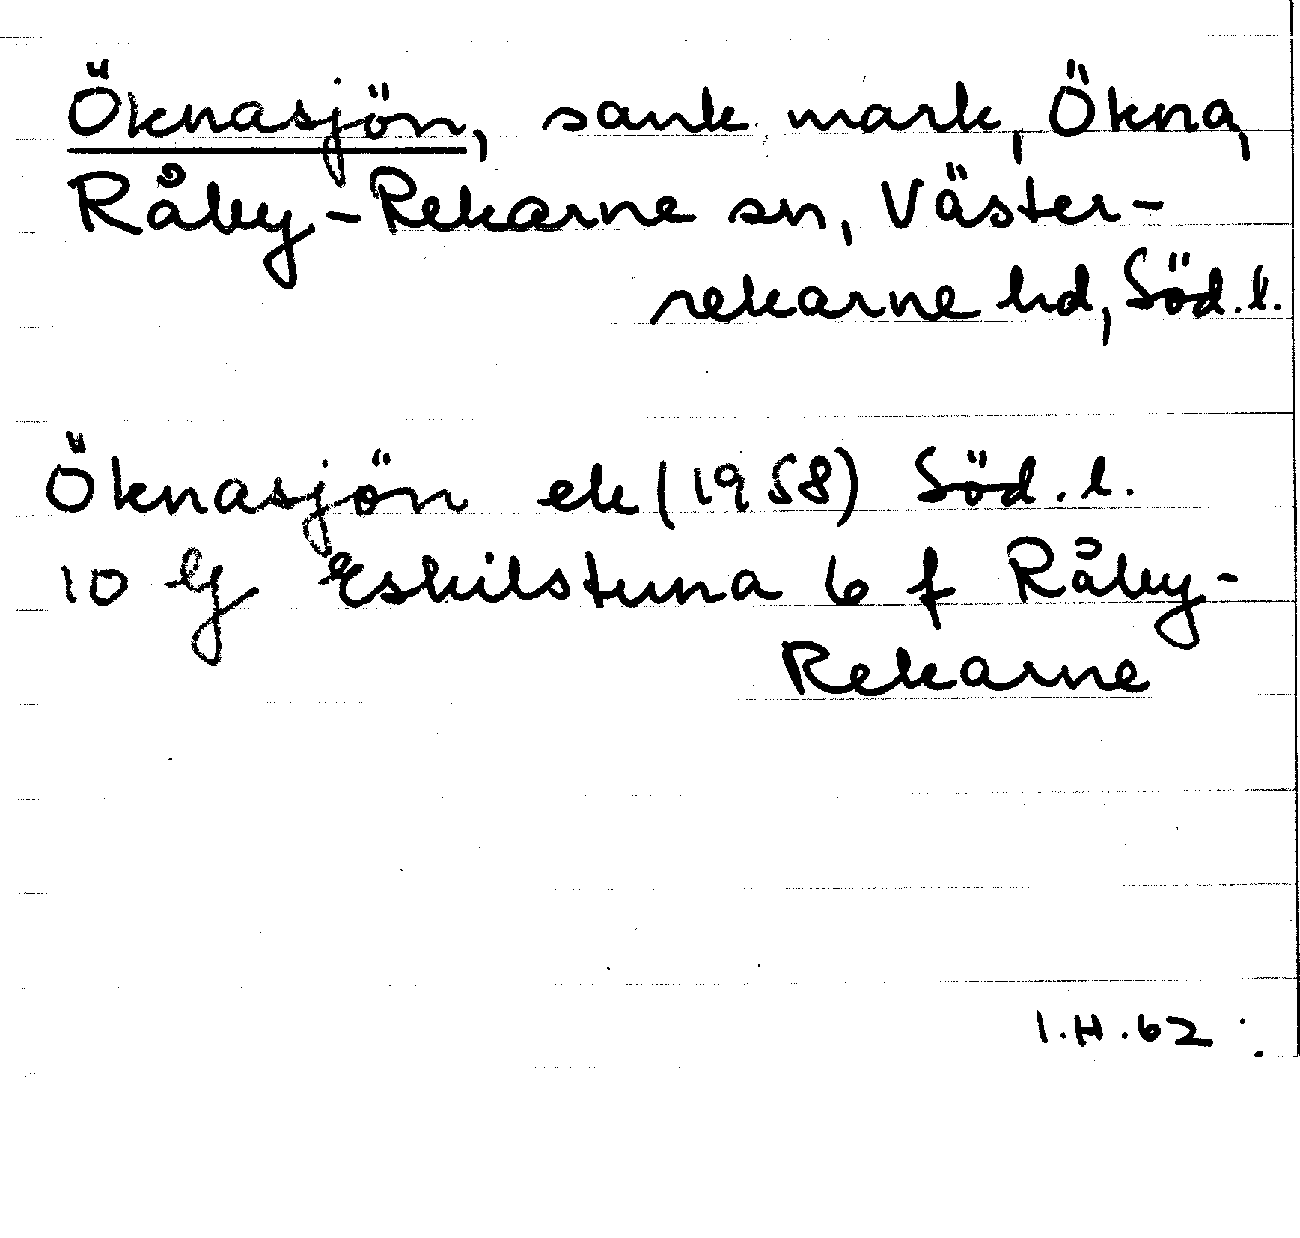 Öknasjön, sank mark, Ökna,
Råby-Rekarne sn, Väster-
rekarne hd, Söd.l.
Öknasjön ek (1958) Söd.l.
10 G Eskilstuna 6 f Råby-
Rekarne
I.H.62